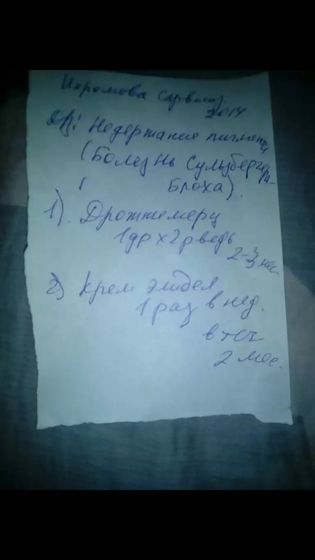 Икромова Сарвиноз
2014
Дз: Недержание пигмента
(Болезнь Сульцбергера-
Блоха).
1). 
1др х 2р в день
2-3 мес.
2) Крем элидел
1 раз в нед.
в теч
2 мес.